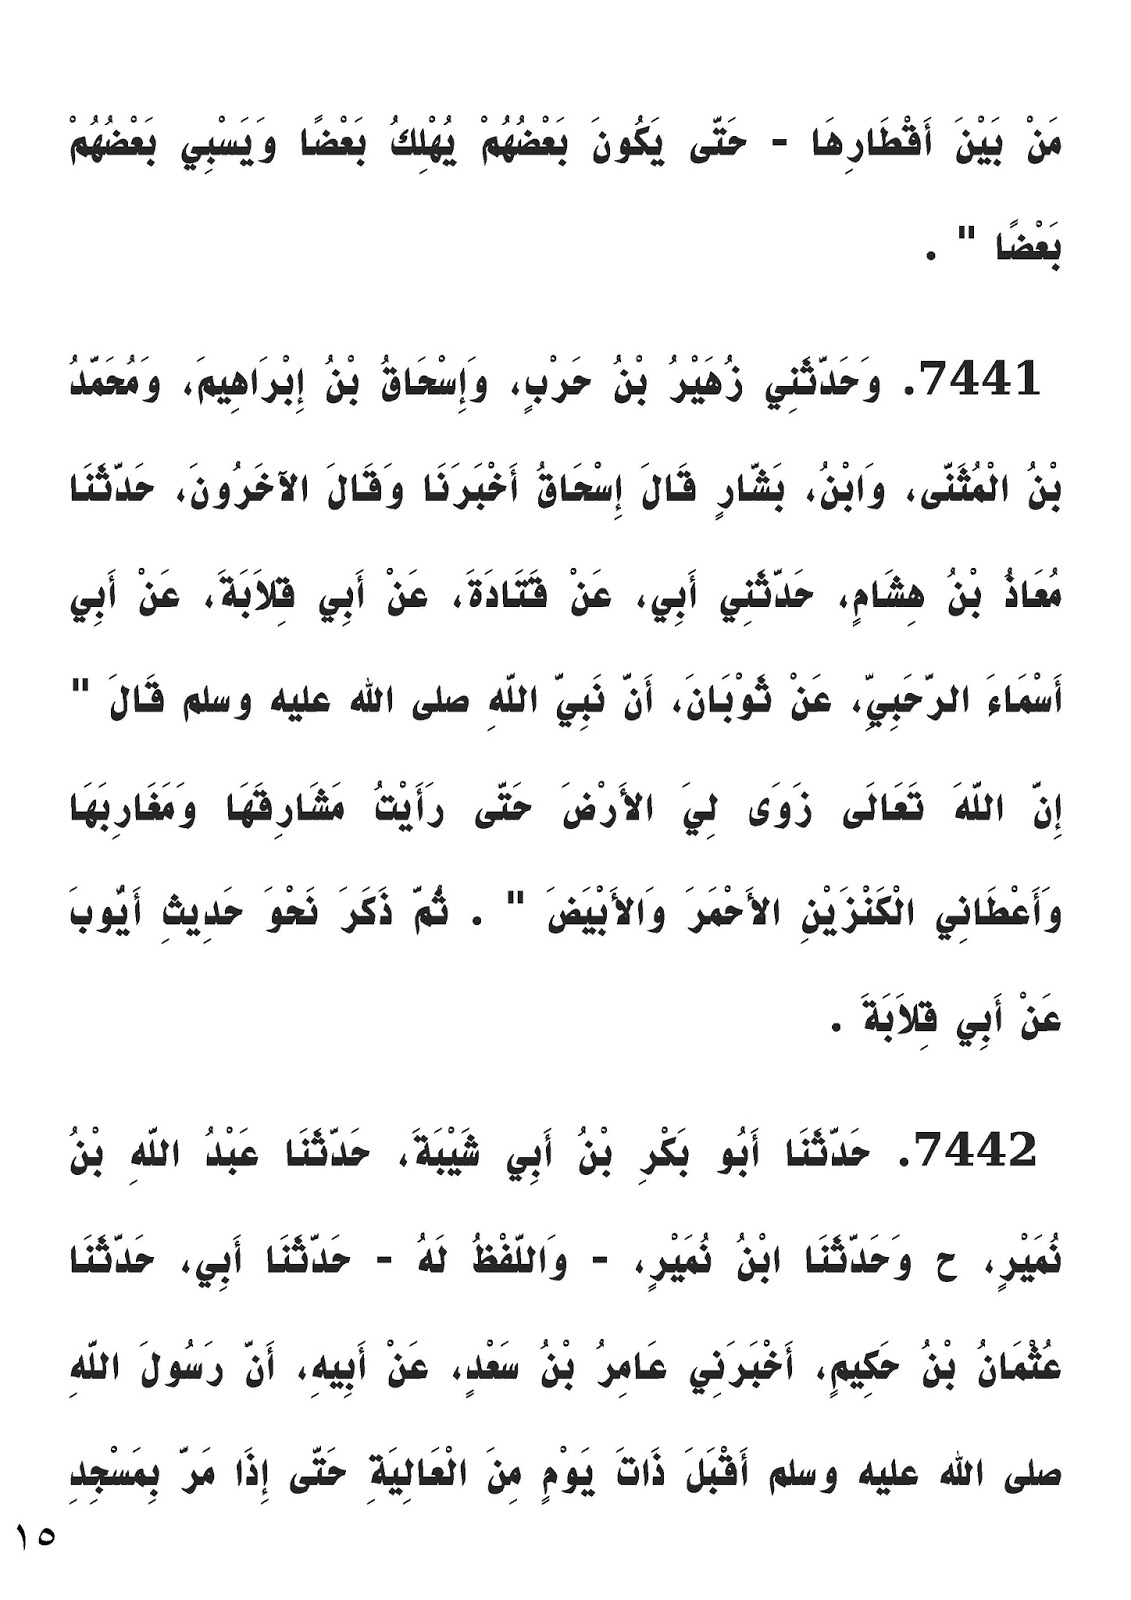 مَنْ بَيْنَ أَقْطَارِهَا - حَتَّى يَكُونَ بَعْضُهُمْ يُهْلِكُ بَعْضًا وَيَسْبِي بَعْضُهُمْ
بَعْضًا " .
7441. وَحَدَّثَنِي زُهَيْرُ بْنُ حَرْبٍ، وَإِسْحَاقُ بْنُ إِبْرَاهِيمَ، وَمُحَمَّدُ
بْنُ الْمُثَنَّى، وَابْنُ، بَشَّارٍ قَالَ إِسْحَاقُ أَخْبَرَنَا وَقَالَ الآخَرُونَ، حَدَّثَنَا
مُعَاذُ بْنُ هِشَامٍ، حَدَّثَنِي أَبِي، عَنْ قَتَادَةَ، عَنْ أَبِي قِلاَبَةَ، عَنْ أَبِي
أَسْمَاءَ الرَّحَبِيِّ، عَنْ ثَوْبَانَ، أَنَّ نَبِيَّ اللَّهِ صلى الله عليه وسلم قَالَ "
إِنَّ اللَّهَ تَعَالَى زَوَى لِيَ الأَرْضَ حَتَّى رَأَيْتُ مَشَارِقَهَا وَمَغَارِبَهَا
وَأَعْطَانِي الْكَنْزَيْنِ الأَحْمَرَ وَالأَبْيَضَ " . ثُمَّ ذَكَرَ نَحْوَ حَدِيثِ أَيُّوبَ
عَنْ أَبِي قِلاَبَةَ .
7442. حَدَّثَنَا أَبُو بَكْرِ بْنُ أَبِي شَيْبَةَ، حَدَّثَنَا عَبْدُ اللَّهِ بْنُ
نُمَيْرٍ، ح وَحَدَّثَنَا ابْنُ نُمَيْرٍ، - وَاللَّفْظُ لَهُ - حَدَّثَنَا أَبِي، حَدَّثَنَا
عُثْمَانُ بْنُ حَكِيمٍ، أَخْبَرَنِي عَامِرُ بْنُ سَعْدٍ، عَنْ أَبِيهِ، أَنَّ رَسُولَ اللَّهِ
صلى الله عليه وسلم أَقْبَلَ ذَاتَ يَوْمٍ مِنَ الْعَالِيَةِ حَتَّى إِذَا مَرَّ بِمَسْجِدِ
١٥